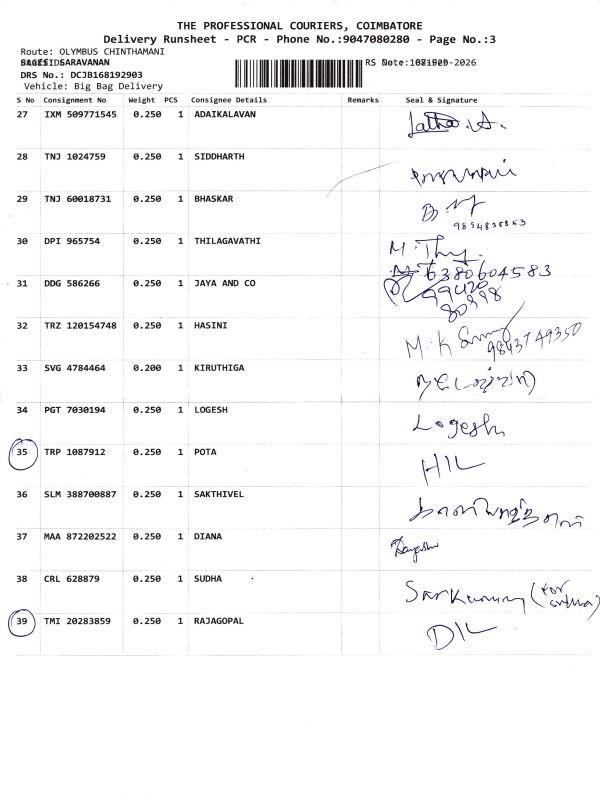 THE PROFESSIONAL COURIERS, COIMBATORE
Delivery Runsheet - PCR - Phone No.:9047080280 - Page No.:3
Route: OLYMBUS CHINTHAMANI
SARAVANAN
DRS No.: DCJB168192903
Vehicle: Big Bag Delivery
S No Consignment No Weight PCS Consignee Details Remarks Seal & Signature
27 IXM 509771545 0.250 1 ADAIKALAVAN Latha.A.
28 TNJ 1024759 0.250 1 SIDDHARTH
29 TNJ 60018731 0.250 1 BHASKAR
30 DPI 965754 0.250 1 THILAGAVATHI M.Thy.
6380604583
31 DDG 586266 0.250 1 JAYA AND CO 99420
80998
32 TRZ 120154748 0.250 1 HASINI M.K
9843749350
33 SVG 4784464 0.200 1 KIRUTHIGA
34 PGT 7030194 0.250 1 LOGESH Logesh
35 TRP 1087912 0.250 1 POTA HIL
36 SLM 388700887 0.250 1 SAKTHIVEL
37 MAA 872202522 0.250 1 DIANA
38 CRL 628879 0.250 1 SUDHA (for
39 TMI 20283859 0.250 1 RAJAGOPAL DIL